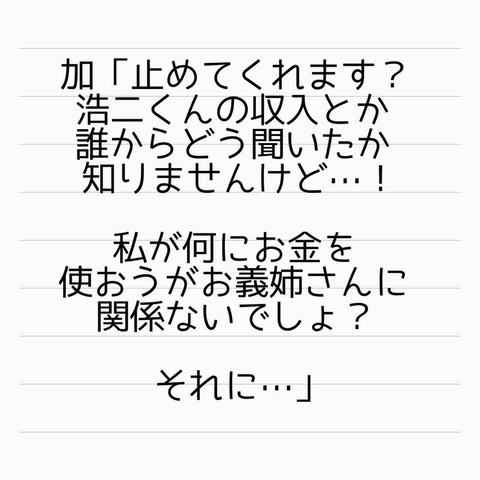 加「止めてくれます？
浩二くんの収入とか
誰からどう聞いたか
知りませんけど…！
私が何にお金を
使おうがお義姉さんに
関係ないでしょ？
それに…」